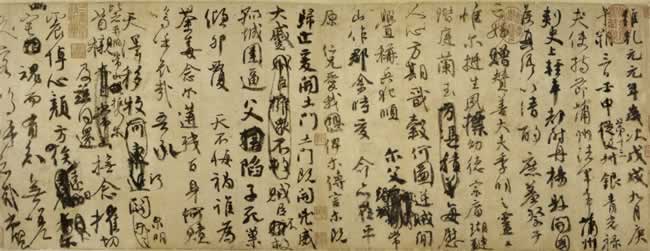 維乾元元年歲次戊戌九月庚
午朔三日壬申第十三叔從父銀青光祿
夫使持節蒲州諸軍事蒲州
刺史上輕車都尉丹楊縣開國
侯真卿以清酌庶羞祭于
亡姪贈贊善大夫季明之靈
惟爾挺生夙標幼德宗廟瑚璉
階庭蘭玉方憑積善每慰
人心方期戩穀何圖逆賊間
釁稱兵犯順爾父竭誠常
山作郡余時受命亦在平
原仁兄愛我俾爾傳言爾既
歸止爰開土門土門既開凶威
大蹙賊臣擁眾不救賊臣不救
孤城圍逼父擒陷子死巢
傾卵覆天不悔禍誰為
荼毒念爾遘殘百身何贖
嗚呼哀哉吾承
天澤移牧河東近河關爾明
比者再陷常山攜爾
首櫬及茲同還撫念摧切
震悼心顏方俟遠日卜爾
幽宅魂而有知無嗟
久客嗚呼哀哉尚饗